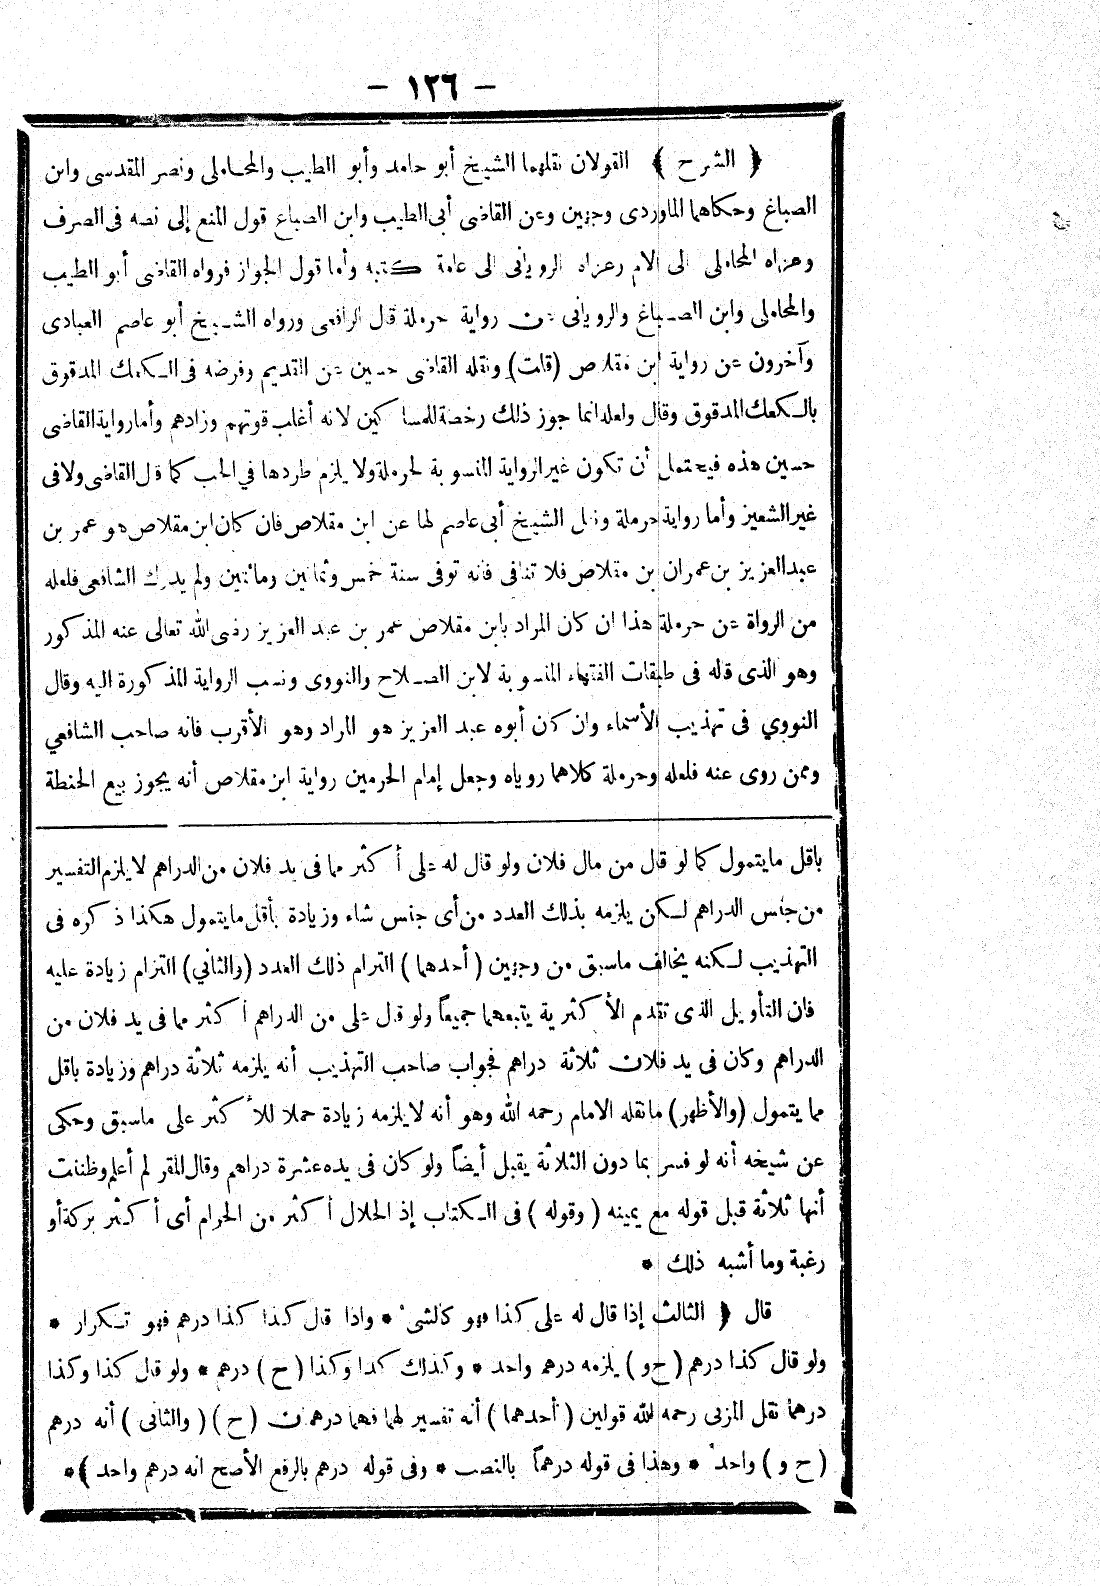 - ١٢٦ -
﴿ الشرح ﴾ القولان نقلهما الشيخ أبو حامد وأبو الطيب والمحاملى ونصر المقدسى وابن
الصباغ وحكاهما الماوردى وجهين وعن القاضى أبى الطيب وابن الصباغ قول المنع إلى نصه فى الصرف
وعزاه المحاملى الى الام وعزاه الرويانى الى عامة كتبه وأما قول الجواز فرواه القاضى أبو الطيب
والمحاملى وابن الصباغ والرويانى عن رواية حرملة قال الرافعى ورواه الشيخ أبو عاصم العبادى
وآخرون عن رواية ابن مقلاص (قلت) ونقله القاضى حسين عن القديم وفرضه فى الكعك المدقوق
بالكعك المدقوق وقال ولعله انما جوز ذلك رخصة للمساكين لانه أغلب قوتهم وزادهم وأما رواية القاضى
حسين هذه فيحتمل أن تكون غير الرواية المنسوبة لحرملة ولا يلزم طردها في الحب كما قال القاضى ولا فى
غير الشعير وأما رواية حرملة ونقل الشيخ أبى عاصم لها عن ابن مقلاص فان كان ابن مقلاص هو عمر بن
عبد العزيز بن عمران بن مقلاص فلا تنافى فانه توفى سنة خمس وثمانين ومائتين ولم يدرك الشافعى فلعله
من الرواة عن حرملة هذا ان كان المراد بابن مقلاص عمر بن عبد العزيز رضى الله تعالى عنه المذكور
وهو الذى قاله فى طبقات الفقهاء المنسوبة لابن الصلاح والنووى ونسب الرواية المذكورة اليه وقال
النووي فى تهذيب الأسماء وان كان أبوه عبد العزيز هو المراد وهو الأقرب فانه صاحب الشافعي
وممن روى عنه فلعله وحرملة كلاهما روياه وجعل إمام الحرمين رواية ابن مقلاص أنه يجوز بيع الحنطة
باقل مايتمول كما لو قال من مال فلان ولو قال له على أكثر مما فى يد فلان من الدراهم لا يلزم التفسير
من جنس الدراهم لكن يلزمه بذلك العدد من أى جنس شاء وزيادة بأقل مايتمول هكذا ذكره فى
التهذيب لكنه يخالف ماسبق من وجهين (أحدهما) التزام ذلك العدد (والثاني) التزام زيادة عليه
فان التأويل الذى تقدم الأكثرية يتبعهما جميعاً ولو قال على من الدراهم أكثر مما فى يد فلان من
الدراهم وكان فى يد فلان ثلاثة دراهم فجواب صاحب التهذيب أنه يلزمه ثلاثة دراهم وزيادة باقل
مما يتمول (والأظهر) مانقله الامام رحمه الله وهو أنه لا يلزمه زيادة حملا للأكثر على ماسبق وحكى
عن شيخه أنه لو فسر بما دون الثلاثة يقبل أيضاً ولو كان فى يده عشرة دراهم وقال المقر لم أعلم وظننت
أنها ثلاثة قبل قوله مع يمينه ( وقوله ) فى الكتاب إذ الحلال أكثر من الحرام أى أكثر بركة أو
رغبة وما أشبه ذلك *
قال ﴿ الثالث إذا قال له على كذا فهو كالشىء * واذا قال كذا كذا درهم فهو تكرار *
ولو قال كذا درهم ( ح و ) يلزمه درهم واحد * وكذلك كذا وكذا ( ح ) درهم * ولو قال كذا وكذا
درهما نقل المزنى رحمه الله قولين ( أحدهما ) أنه تفسير لهما فهما درهمان ( ح ) ( والثانى ) أنه درهم
( ح و ) واحد * وهذا فى قوله درهماً بالنصب * وفى قوله درهم بالرفع الأصح انه درهم واحد ﴾ *